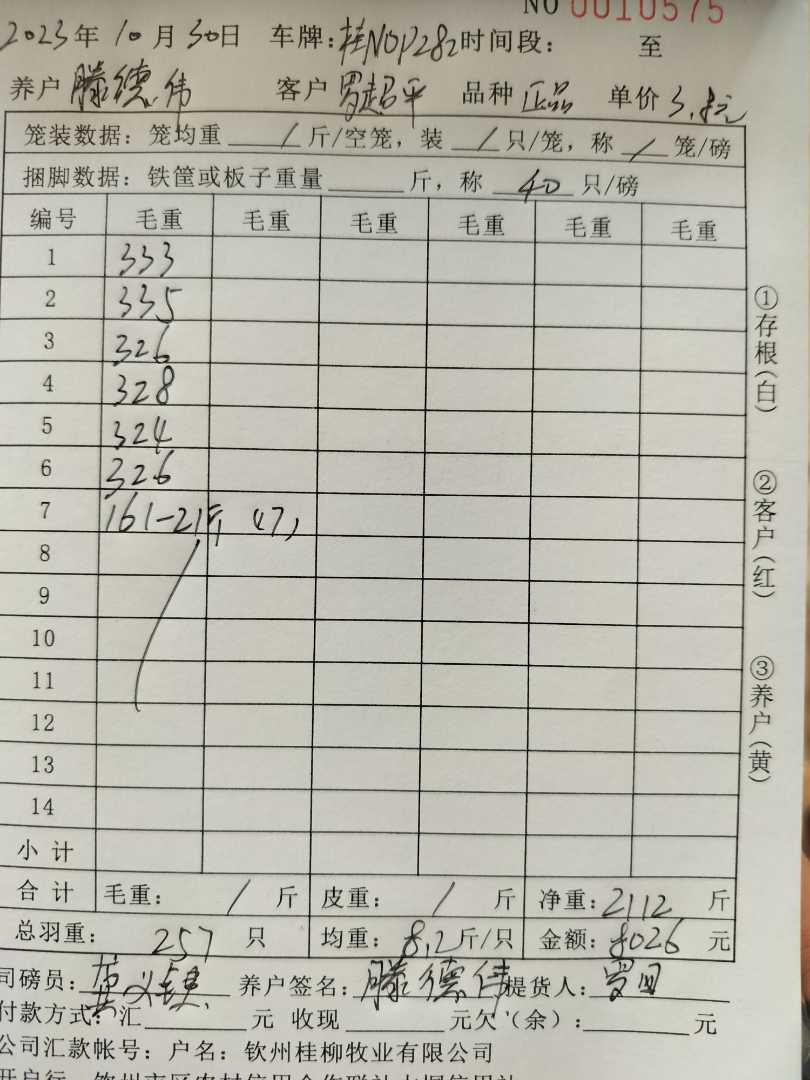 NO 0010575
2023年10月30日 车牌:桂NOP282时间段: 至
养户 滕德伟 客户 罗超平 品种 正品 单价 3.8元
笼装数据:笼均重 / 斤/空笼,装 / 只/笼,称 / 笼/磅
捆脚数据:铁筐或板子重量 斤,称 40 只/磅
编号 毛重 毛重 毛重 毛重 毛重 毛重
1 333
2 335
3 326
4 328
5 324
6 326
7 161-21斤 (7)
8
9
10
11
12
13
14
小计
合计 毛重: / 斤 皮重: / 斤 净重:2112 斤
总羽重: 257 只 均重:8.2斤/只 金额:8026 元
司磅员: 养户签名:滕德伟 提货人:罗
付款方式:汇 元 收现 元欠(余): 元
公司汇款帐号:户名:钦州桂柳牧业有限公司
①存根(白)
②客户(红)
③养户(黄)